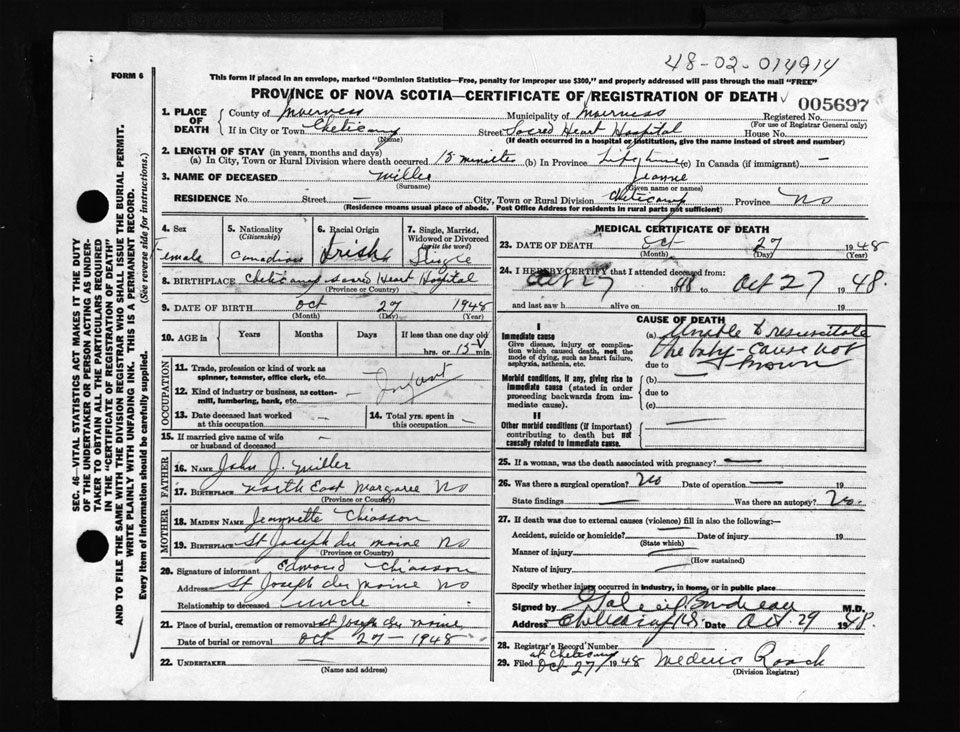 48-02-014914
FORM 6
This form if placed in an envelope, marked "Dominion Statistics—Free, penalty for improper use $300," and properly addressed will pass through the mail "FREE"
PROVINCE OF NOVA SCOTIA—CERTIFICATE OF REGISTRATION OF DEATH
005697
1. PLACE OF DEATH
County of Inverness Municipality of Inverness Registered No.
(For use of Registrar General only)
If in City or Town Cheticamp Street Sacred Heart Hospital House No.
(Name) (If death occurred in a hospital or institution, give the name instead of street and number)
2. LENGTH OF STAY (in years, months and days)
(a) In City, Town or Rural Division where death occurred 15 minutes (b) In Province Lifetime (c) In Canada (if immigrant) —
3. NAME OF DECEASED Miller Jeanne
(Surname) (Given name or names)
RESIDENCE No. Street — City, Town or Rural Division Cheticamp Province NS
(Residence means usual place of abode. Post Office Address for residents in rural parts not sufficient)
4. Sex Female
5. Nationality (Citizenship) Canadian
6. Racial Origin Irish
7. Single, Married, Widowed or Divorced (write the word) Single
8. BIRTHPLACE Cheticamp Sacred Heart Hospital
(Province or Country)
9. DATE OF BIRTH Oct 27 1948
(Month) (Day) (Year)
10. AGE in Years Months Days If less than one day old
hrs. or 15 min.
OCCUPATION
11. Trade, profession or kind of work as spinner, teamster, office clerk, etc.
Infant
12. Kind of industry or business, as cotten-mill, lumbering, bank, etc.
13. Date deceased last worked at this occupation —
14. Total yrs. spent in this occupation —
15. If married give name of wife or husband of deceased —
FATHER
16. NAME John J. Miller
17. BIRTHPLACE North East Margaree NS
(Province or Country)
MOTHER
18. MAIDEN NAME Jeannette Chiasson
19. BIRTHPLACE St Joseph du Moine NS
(Province or Country)
20. Signature of informant Edmond Chiasson
Address St Joseph du Moine NS
Relationship to deceased uncle
21. Place of burial, cremation or removal St Joseph du Moine
Date of burial or removal Oct 27 - 1948
22. UNDERTAKER —
(Name and address)
MEDICAL CERTIFICATE OF DEATH
23. DATE OF DEATH Oct 27 1948
(Month) (Day) (Year)
24. I HEREBY CERTIFY that I attended deceased from:
Oct 27 1948 Oct 27 1948.
and last saw h alive on 19
CAUSE OF DEATH
I
Immediate cause
Give disease, injury or complication which caused death, not the mode of dying, such as heart failure, asphyxia, asthenia, etc.
(a) Unable to resuscitate
the baby - cause not
due to known
Morbid conditions, if any, giving rise to immediate cause (stated in order proceeding backwards from immediate cause).
(b) —
due to
(c)
II
Other morbid conditions (if important) contributing to death but not causally related to immediate cause.
25. If a woman, was the death associated with pregnancy? —
26. Was there a surgical operation? No Date of operation — 19
State findings — Was there an autopsy? No.
27. If death was due to external causes (violence) fill in also the following:—
Accident, suicide or homicide? Date of injury 19
(State which)
Manner of injury
(How sustained)
Nature of injury
Specify whether injury occurred in industry, in home, or in public place
Signed by M.D.
Address Cheticamp N.S. Date Oct. 29 1948
28. Registrar's Record Number
at Cheticamp
29. Filed Oct 27 1948 Mederic Roach
(Division Registrar)
SEC. 46—VITAL STATISTICS ACT MAKES IT THE DUTY
OF THE UNDERTAKER OR PERSON ACTING AS UNDER-
TAKER TO OBTAIN ALL THE PARTICULARS REQUIRED
IN THE "CERTIFICATE OF REGISTRATION OF DEATH"
AND TO FILE THE SAME WITH THE DIVISION REGISTRAR WHO SHALL ISSUE THE BURIAL PERMIT.
WRITE PLAINLY WITH UNFADING INK. THIS IS A PERMANENT RECORD.
Every item of information should be carefully supplied. (See reverse side for instructions.)